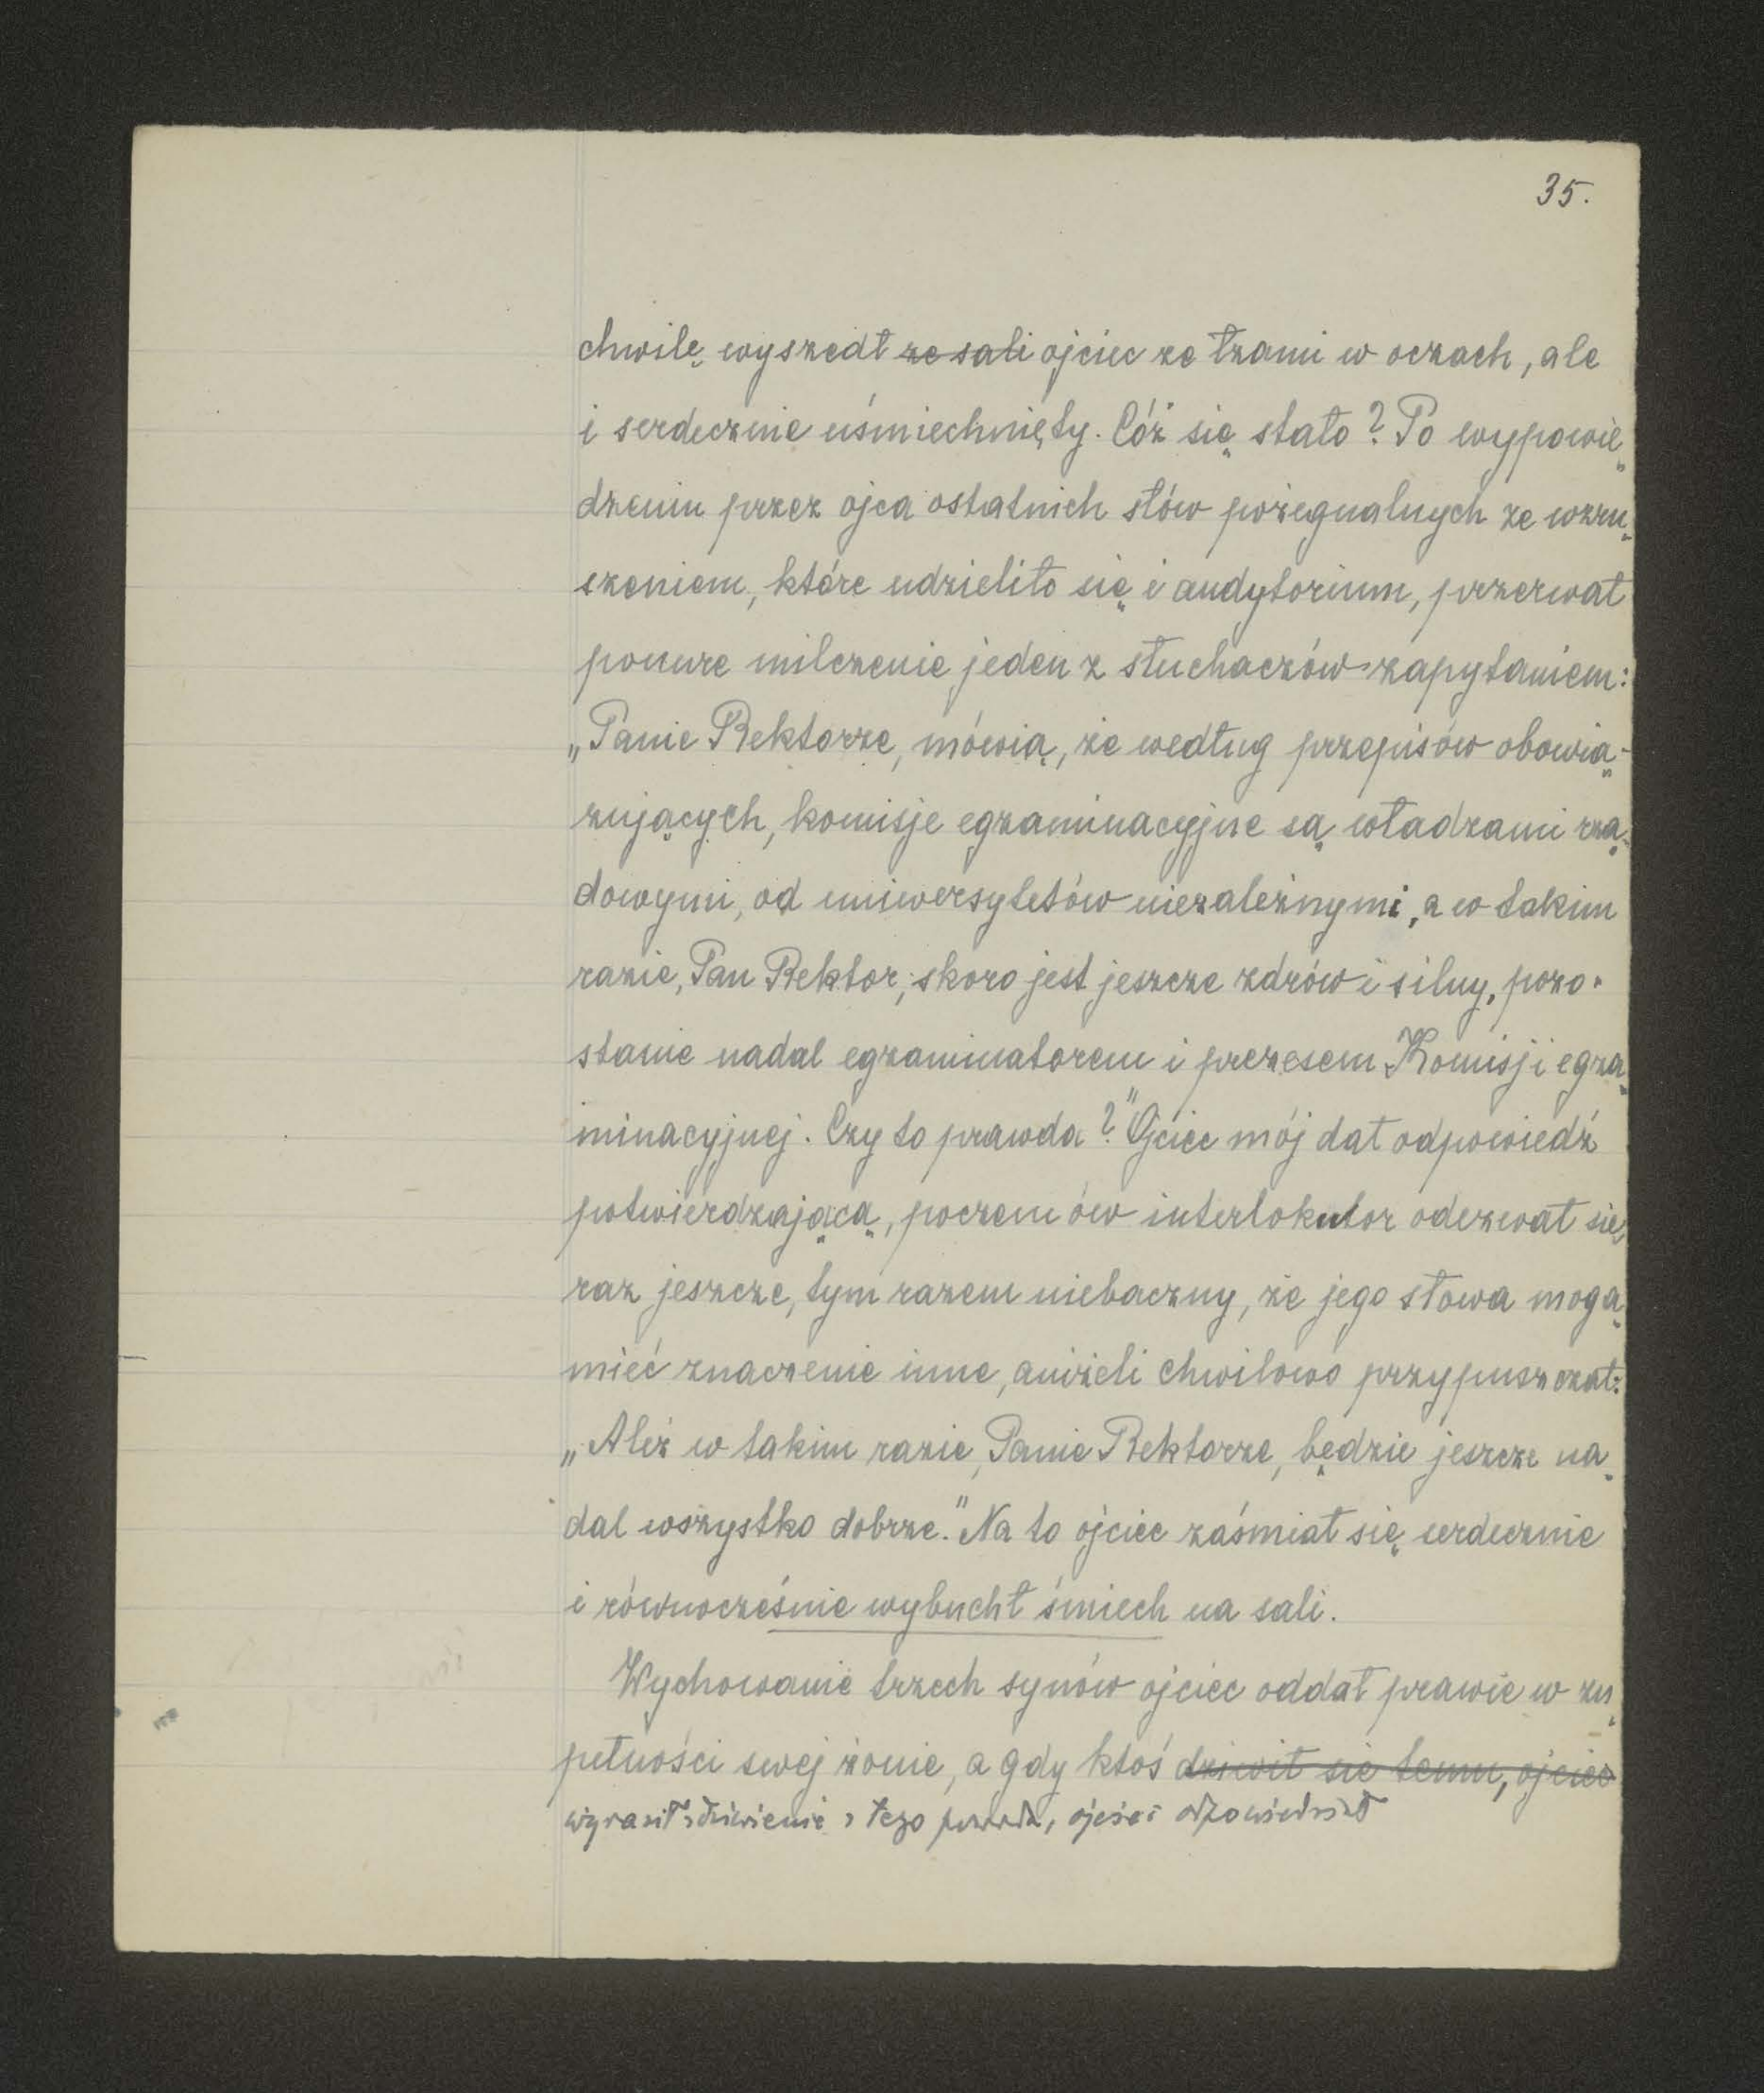 35.
chwilę wyszedł ze sali ojciec ze łzami w oczach, ale
i serdecznie uśmiechnięty. Cóż się stało? Po wypowie
dzeniu przez ojca ostatnich słów pożegnalnych ze wzru
szeniem, które udzieliło się i audytorium, przerwał
ponure milczenie jeden z słuchaczów zapytaniem:
„Panie Rektorze, mówią, że według przepisów obowią-
zujących, komisje egzaminacyjne są władzami rzą-
dowymi, od uniwersytetów niezależnymi, a w takim
razie, Pan Rektor, skoro jest jeszcze zdrów i silny, pozo-
stanie nadal egzaminatorem i prezesem Komisji egza
minacyjnej. Czy to prawda?" Ojciec mój dał odpowiedź
potwierdzającą, poczem ów interlokutor odezwał się,
raz jeszcze, tym razem niebaczny, że jego słowa mogą
mieć znaczenie inne, aniżeli chwilowo przypuszczał:
„Ależ w takim razie, Panie Rektorze, będzie jeszcze na
dal wszystko dobrze." Na to ojciec zaśmiał się serdecznie
i równocześnie wybuchł śmiech na sali.
Wychowanie trzech synów ojciec oddał prawie w zu
pełności swej żonie, a gdy ktoś dziwił się temu, ojciec
wyraził zdziwienie z tego powodu, ojciec odpowiedział